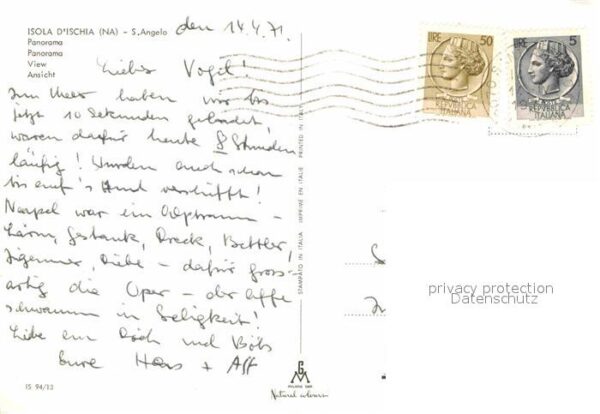 ISOLA D'ISCHIA (NA) - S. Angelo
Panorama
Panorama
View
Ansicht
den 14.4.71.
Liebes Vogel!
Im Meer haben wir bis
jetzt 10 Sekunden gebadet,
waren dafür heute 8 Stunden
läufig! Wurden auch schon
bis auf's Hemd verschifft!
Neapel war ein Alptraum -
Lärm, Gestank, Dreck, Bettler,
Zigeuner, Diebe - dafür gross-
artig die Oper - der Affe
schwamm in Seligkeit!
Liebe an und
Eure + Aff
LIRE 50
REPUBBLICA
ITALIANA
LIRE 5
REPUBBLICA
ITALIANA
STAMPATO IN ITALIA IMPRIMÉ EN ITALIE PRINTED IN ITALY
privacy protection
Datenschutz
IS 94/13
Natural colours